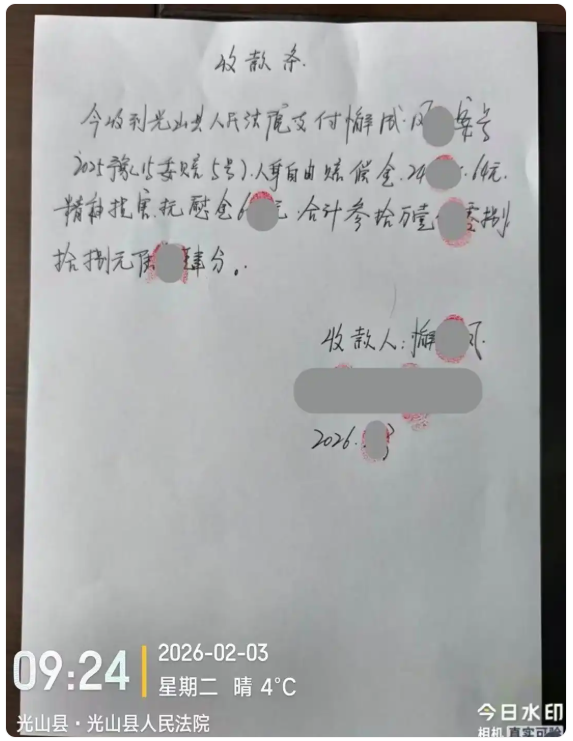 收款条.
今收到光山县人民法院支付 案号
2025豫15委赔5号).人身自由赔偿金.24 .64元.
精神损害抚慰金6 元.合计叁拾万壹 零捌
拾捌元 肆分。
收款人:
2026.
09:24
2026-02-03
星期二 晴 4℃
光山县·光山县人民法院
今日水印
相机 真实可验